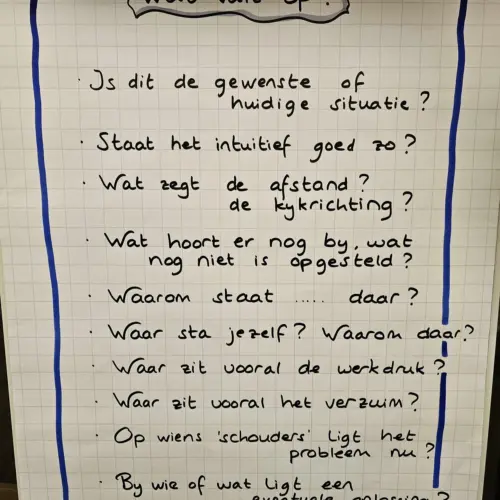 · Is dit de gewenste of
huidige situatie?
· Staat het intuitief goed zo?
· Wat zegt de afstand?
de kykrichting?
· Wat hoort er nog by, wat
nog niet is opgesteld?
· Waarom staat ..... daar?
· Waar sta jezelf? Waarom daar?
· Waar zit vooral de werkdruk?
· Waar zit vooral het verzuim?
· Op wiens 'schouders' ligt het
probleem nu?
· By wie of wat ligt een